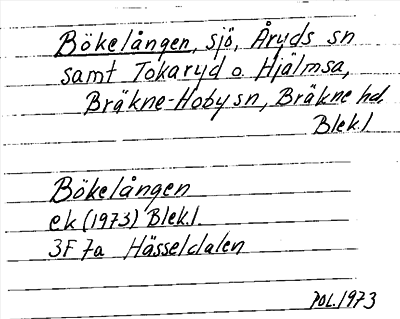 Bökelången, sjö, Åryds sn
samt Tokaryd o. Hjälmsa,
Bräkne-Hoby sn, Bräkne hd.
Blek.l
Bökelången
ek (1973) Blek.l.
3F 7a Hässeldalen
POL.1973